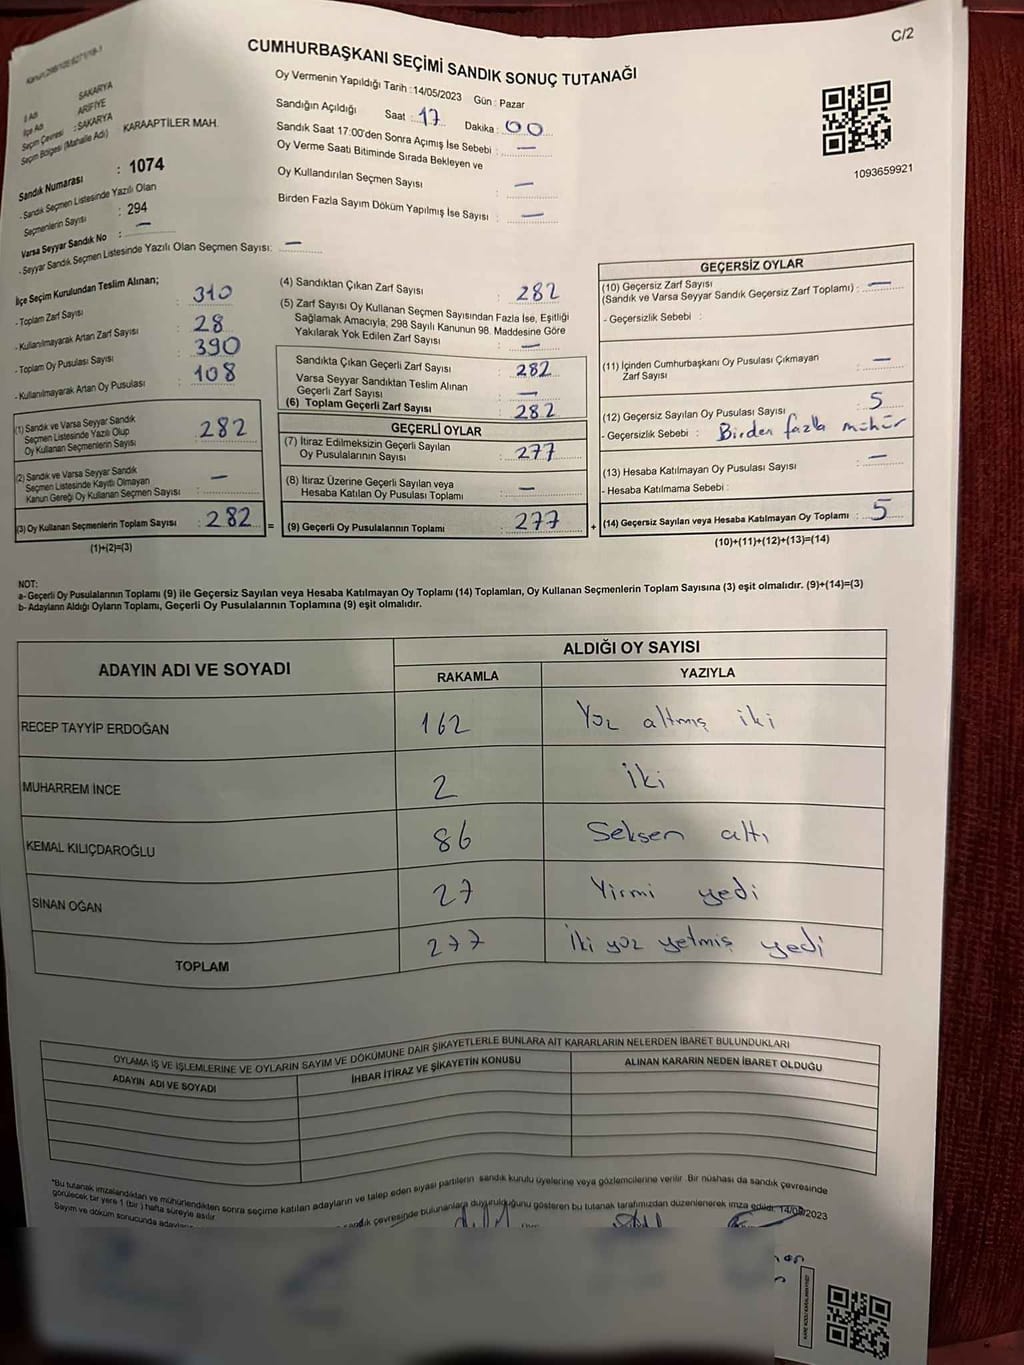 C/2
CUMHURBAŞKANI SEÇİMİ SANDIK SONUÇ TUTANAĞI
Oy Vermenin Yapıldığı Tarih :14/05/2023 Gün : Pazar
İl Adı : SAKARYA
İlçe Adı : ARİFİYE
Seçim Çevresi : SAKARYA
Seçim Bölgesi (Mahalle Adı) KARAAPTİLER MAH.
Sandık Numarası : 1074
- Sandık Seçmen Listesinde Yazılı Olan
Seçmenlerin Sayısı : 294
Varsa Seyyar Sandık No : —
- Seyyar Sandık Seçmen Listesinde Yazılı Olan Seçmen Sayısı: —
Sandığın Açıldığı Saat : 17 Dakika : 00
Sandık Saat 17:00'den Sonra Açımış İse Sebebi : —
Oy Verme Saati Bitiminde Sırada Bekleyen ve
Oy Kullandırılan Seçmen Sayısı : —
Birden Fazla Sayım Döküm Yapılmış İse Sayısı : —
1093659921
İlçe Seçim Kurulundan Teslim Alınan;
- Toplam Zarf Sayısı : 310
- Kullanılmayarak Artan Zarf Sayısı : 28
- Toplam Oy Pusulası Sayısı : 390
- Kullanılmayarak Artan Oy Pusulası : 108
(1) Sandık ve Varsa Seyyar Sandık
Seçmen Listesinde Yazılı Olup
Oy Kullanan Seçmenlerin Sayısı : 282
(2) Sandık ve Varsa Seyyar Sandık
Seçmen Listesinde Kayıtlı Olmayan
Kanun Gereği Oy Kullanan Seçmen Sayısı : —
(3) Oy Kullanan Seçmenlerin Toplam Sayısı : 282
(1)+(2)=(3)
(4) Sandıktan Çıkan Zarf Sayısı : 282
(5) Zarf Sayısı Oy Kullanan Seçmen Sayısından Fazla İse, Eşitliği
Sağlamak Amacıyla; 298 Sayılı Kanunun 98. Maddesine Göre
Yakılarak Yok Edilen Zarf Sayısı : —
Sandıkta Çıkan Geçerli Zarf Sayısı : 282
Varsa Seyyar Sandıktan Teslim Alınan
Geçerli Zarf Sayısı : —
(6) Toplam Geçerli Zarf Sayısı : 282
GEÇERLİ OYLAR
(7) İtiraz Edilmeksizin Geçerli Sayılan
Oy Pusulalarının Sayısı : 277
(8) İtiraz Üzerine Geçerli Sayılan veya
Hesaba Katılan Oy Pusulası Toplamı : —
= (9) Geçerli Oy Pusulalarının Toplamı : 277
GEÇERSİZ OYLAR
(10) Geçersiz Zarf Sayısı
(Sandık ve Varsa Seyyar Sandık Geçersiz Zarf Toplamı) : —
- Geçersizlik Sebebi :
(11) İçinden Cumhurbaşkanı Oy Pusulası Çıkmayan
Zarf Sayısı : —
(12) Geçersiz Sayılan Oy Pusulası Sayısı : 5
- Geçersizlik Sebebi : Birden fazla mühür
(13) Hesaba Katılmayan Oy Pusulası Sayısı : —
- Hesaba Katılmama Sebebi :
+ (14) Geçersiz Sayılan veya Hesaba Katılmayan Oy Toplamı : 5
(10)+(11)+(12)+(13)=(14)
NOT:
a- Geçerli Oy Pusulalarının Toplamı (9) ile Geçersiz Sayılan veya Hesaba Katılmayan Oy Toplamı (14) Toplamları, Oy Kullanan Seçmenlerin Toplam Sayısına (3) eşit olmalıdır. (9)+(14)=(3)
b- Adayların Aldığı Oyların Toplamı, Geçerli Oy Pusulalarının Toplamına (9) eşit olmalıdır.
ADAYIN ADI VE SOYADI
ALDIĞI OY SAYISI
RAKAMLA YAZIYLA
RECEP TAYYİP ERDOĞAN 162 Yüz altmış iki
MUHARREM İNCE 2 İki
KEMAL KILIÇDAROĞLU 86 Seksen altı
SİNAN OĞAN 27 Yirmi yedi
TOPLAM 277 İki yüz yetmiş yedi
OYLAMA İŞ VE İŞLEMLERİNE VE OYLARIN SAYIM VE DÖKÜMÜNE DAİR ŞİKAYETLERLE BUNLARA AİT KARARLARIN NELERDEN İBARET BULUNDUKLARI
ADAYIN ADI VE SOYADI İHBAR İTİRAZ VE ŞİKAYETİN KONUSU ALINAN KARARIN NEDEN İBARET OLDUĞU
"Bu tutanak imzalandıktan ve mühürlendikten sonra seçime katılan adayların ve talep eden siyasi partilerin sandık kurulu üyelerine veya gözlemcilerine verilir. Bir nüshası da sandık çevresinde
görülecek bir yere 1 (bir) hafta süreyle asılır.
Sayım ve döküm sonucunda
sandık çevresinde bulunanlara duyurulduğunu gösteren bu tutanak tarafımızdan düzenlenerek imza edildi. 14/05/2023